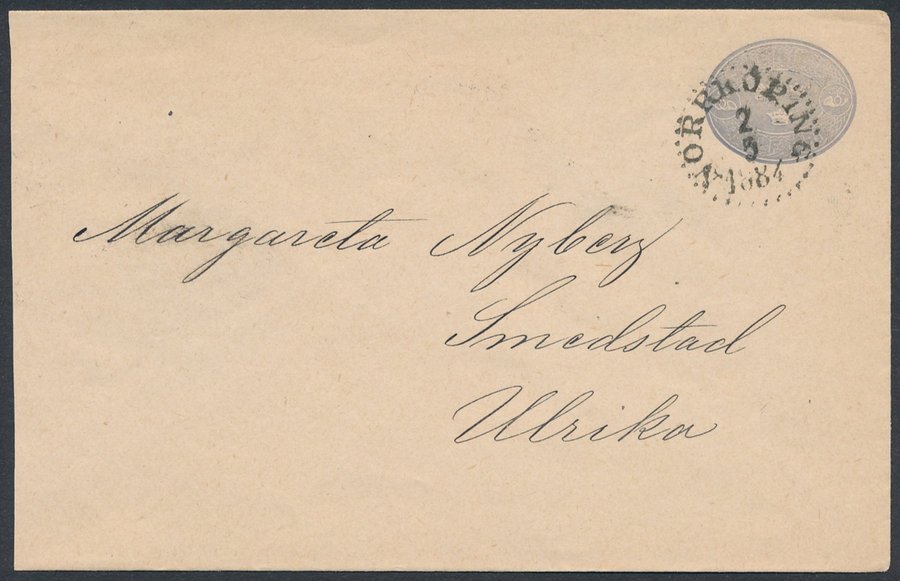 NORRKÖPING
2
5
1884
Margareta Nyberg
Smedstad
Ulrika